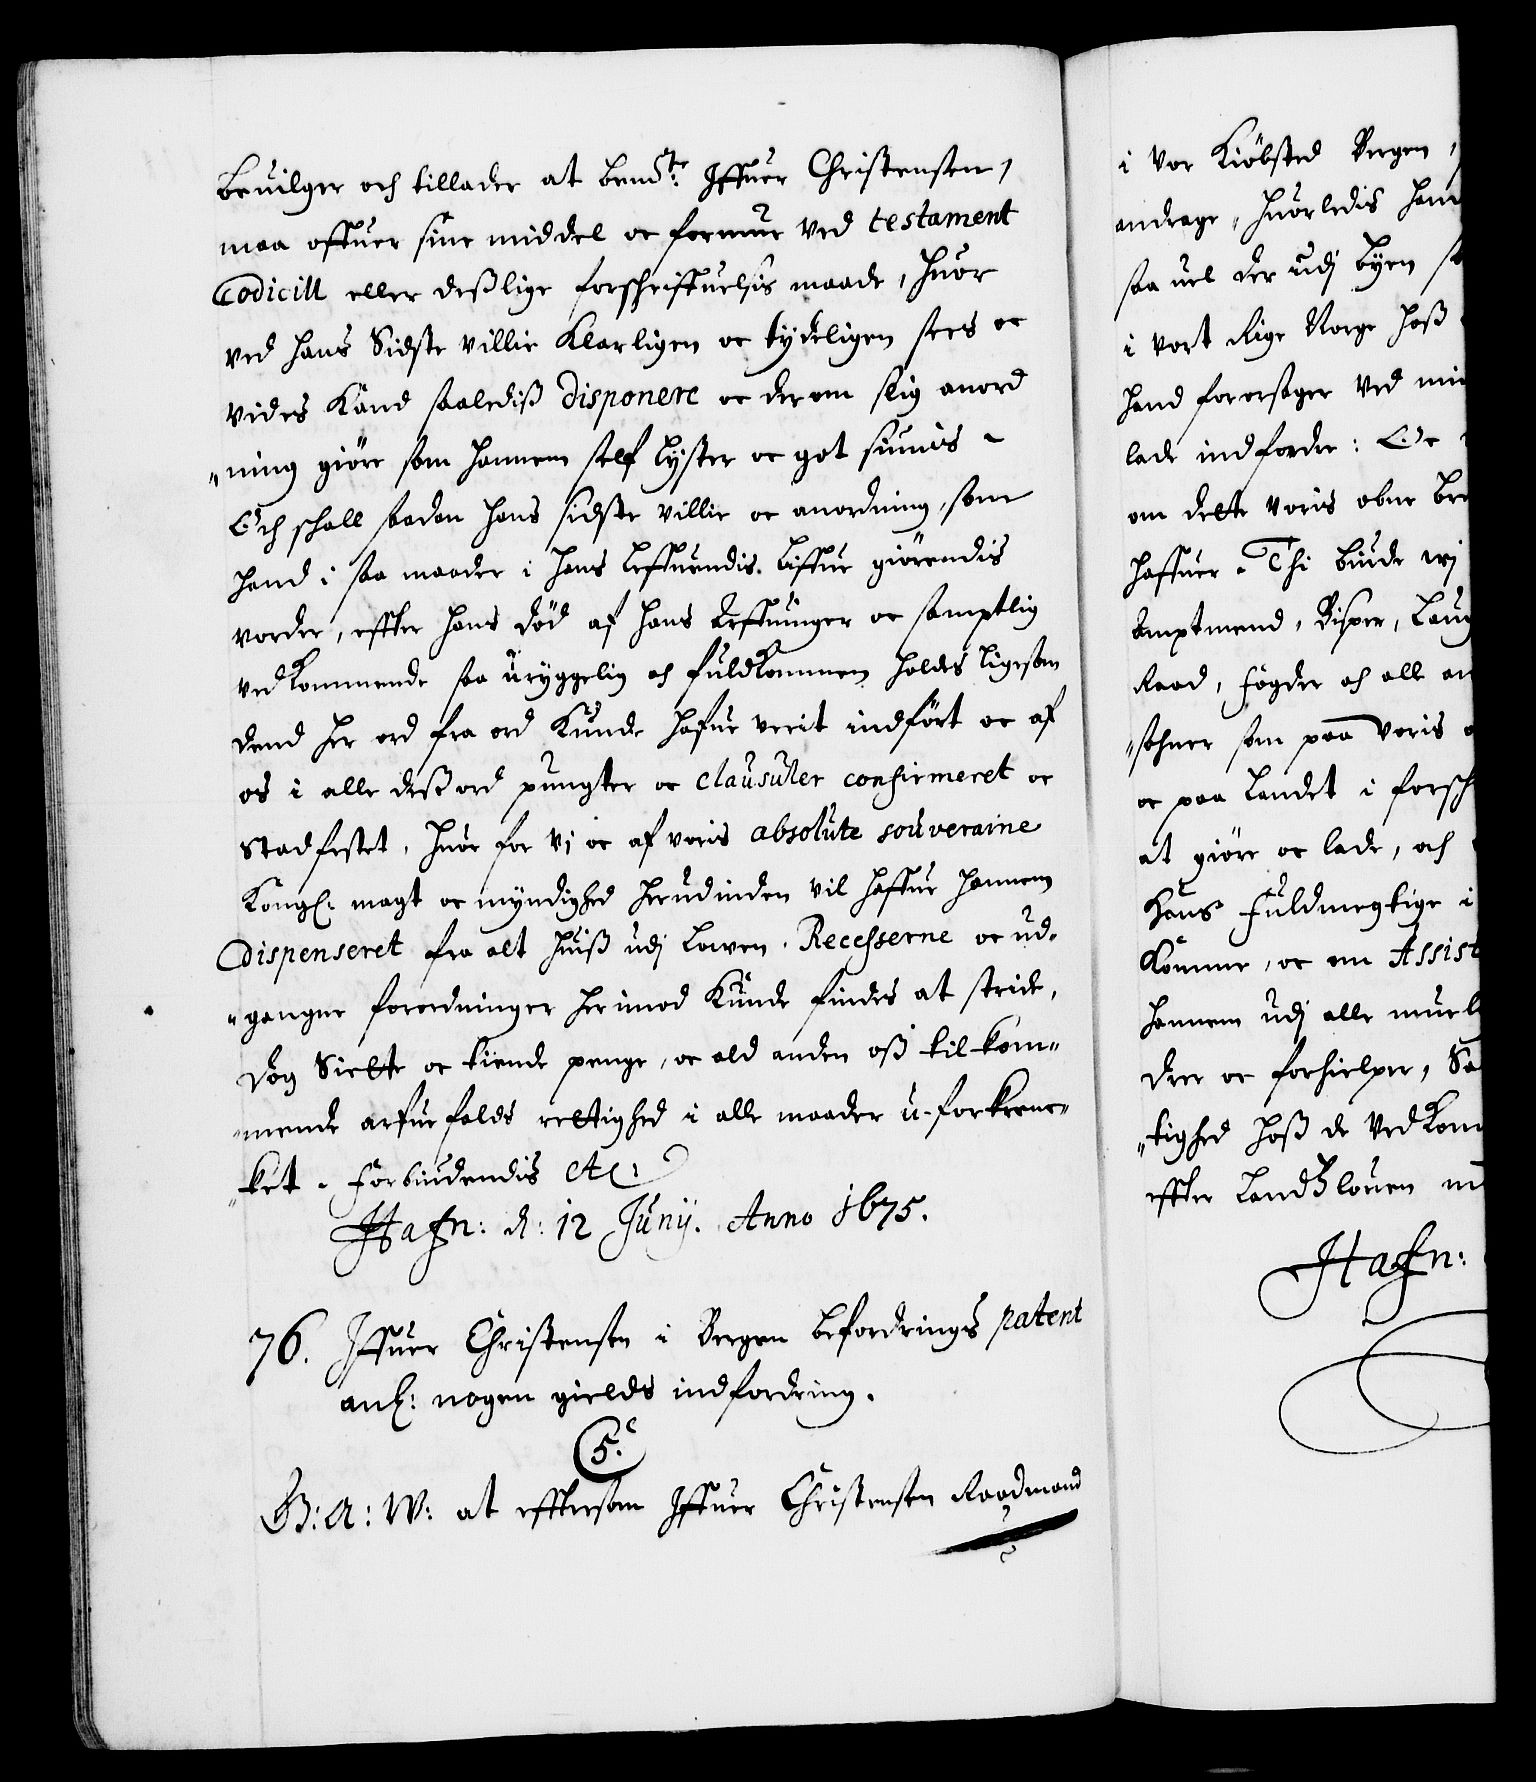 beuilger och tillader at bemte: Iffuer Christensen,
maa offuer sine middel oc formue ved testament
Codicill eller deßlige forschriffuelsis maade, huor
ved hans Sidste villie Klarligen oc tydeligen sees oc
vides Kand saalediß disponere oc derom slig anord
"ning giöre som hannem self lyster oc got siunis -
Och schall saadan hans sidste villie oc anordning, som
hand i saa maader i hans leffuendis liffue giörendis
vorder, effter hans död af hans Arffuinger oc samptlig
vedkommende saa uryggelig och fuldkommen holdes ligesom
dend her ord fra ord Kunde hafue verit indfört oc af
os i alle deß ord pungter oc clausuler confirmeret oc
Stadfestet, huor for vj oc af voris absolute souveraine
Kongl: magt oc myndighed herudinden vil haffue hannem
dispenseret fra alt huiß udj Lowen, Recesserne oc ud-
"gangne forordninger herimod Kunde findes at stride,
dog Siette oc tiende penge, oc ald anden oß tilkom-
"mende arfuefalds rettighed i alle maader u-forkren-
"ket. Forbiudendis etc:
Hafn: d: 12 Junij. Anno 1675.
76. Iffuer Christensen i Bergen befordrings patent
anl: nogen gields indfordring.
5.
G: A: W: at effttersom Iffuer Christensen Raadmand
i vor Kiöbsted Bergen,
andrage, huorledis ham
saa vel der udj byen
i vort Rige Norge hoß
hand foraarsager ved
lade indfordre: Oc
om dette voris obne
haffuer. Thi biude wj
Amptmend, Bisper,
Raad, Fogder och alle
"sohner som paa voris
oc paa Landet i
at giöre oc lade, och
hans fuldmegtige i
Komme, oc om
hannem udj alle
drer oc forhielper,
"tighed hoß de
effter Landßlouen
Hafn: